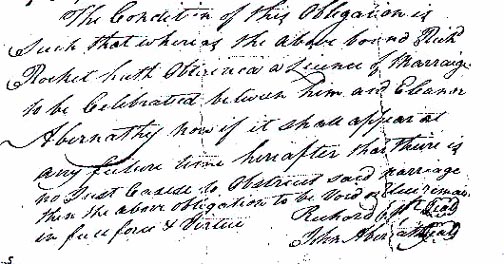 The Condition of this Obligaion is
Such that whereas the above bound Richd
Rocket hath Obtained a Licence of Marraige
to be Celebrated between him and Eleanor
Abernathy now if it shall appear at
any future time hereafter that there is
no Just Cause to Obstruct said marriage
then the above obligation to be Void or Else remain
in full force & Virtue Richard
John Abernathy Seal